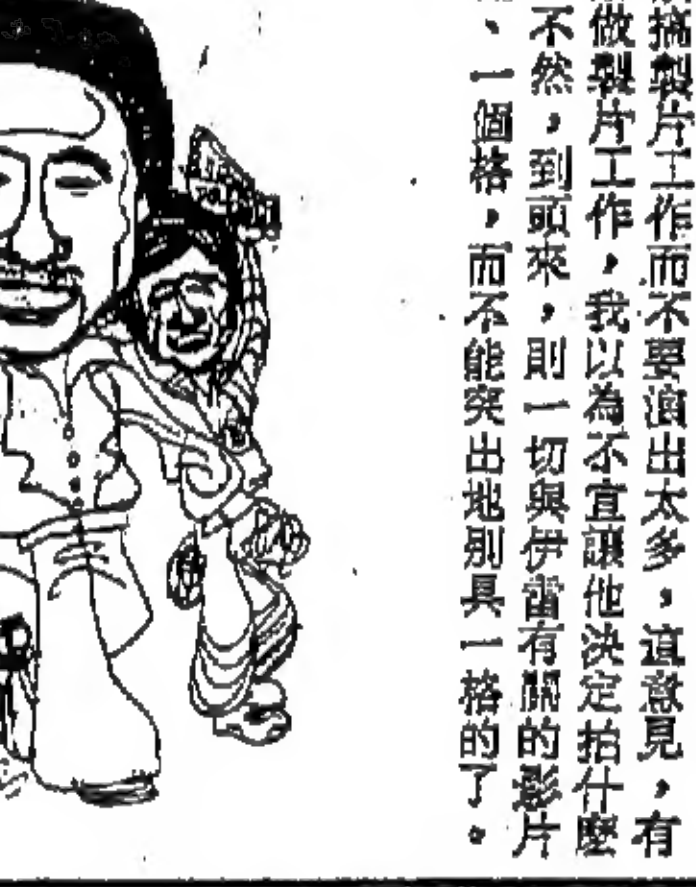 搞製片工作而不要演出太多。這意見，有
做製片工作，我以為不宜讓他決定拍什麼
不然，到頭來，則一切與伊雷有關的影片
、一個格，而不能突出地別具一格的了。